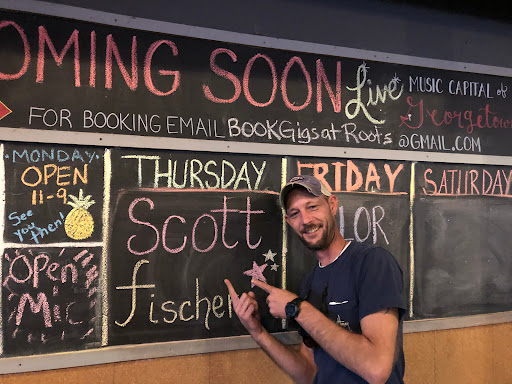 COMING SOON Live MUSIC CAPITAL of
FOR BOOKING EMAIL BOOKGigsatRoots@GMAIL.COM
MONDAY
OPEN
11-9
See
you
then!
Open
Mic
THURSDAY
Scott
fischer
FRIDAY
LOR
SATURDAY